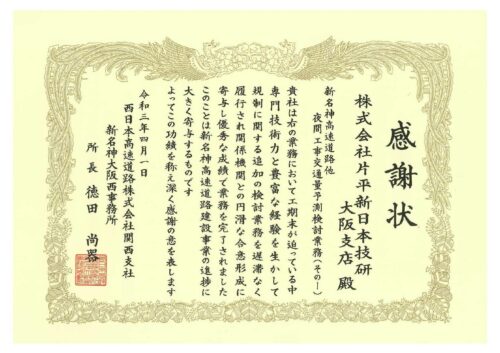 感謝状
株式会社片平新日本技研
大阪支店 殿
新名神高速道路他
夜間工事交通量予測検討業務(その一)
貴社は右の業務において工期末が迫っている中
専門技術力と豊富な経験を生かして
規制に関する追加の検討業務を遅滞なく
履行され関係機関との円滑な合意形成に
寄与し優秀な成績で業務を完了されました
このことは新名神高速道路建設事業の進捗に
大きく寄与するものです
よってこの功績を称え深く感謝の意を表します
令和三年四月一日
西日本高速道路株式会社関西支社
新名神大阪西事務所
所長 徳田 尚器